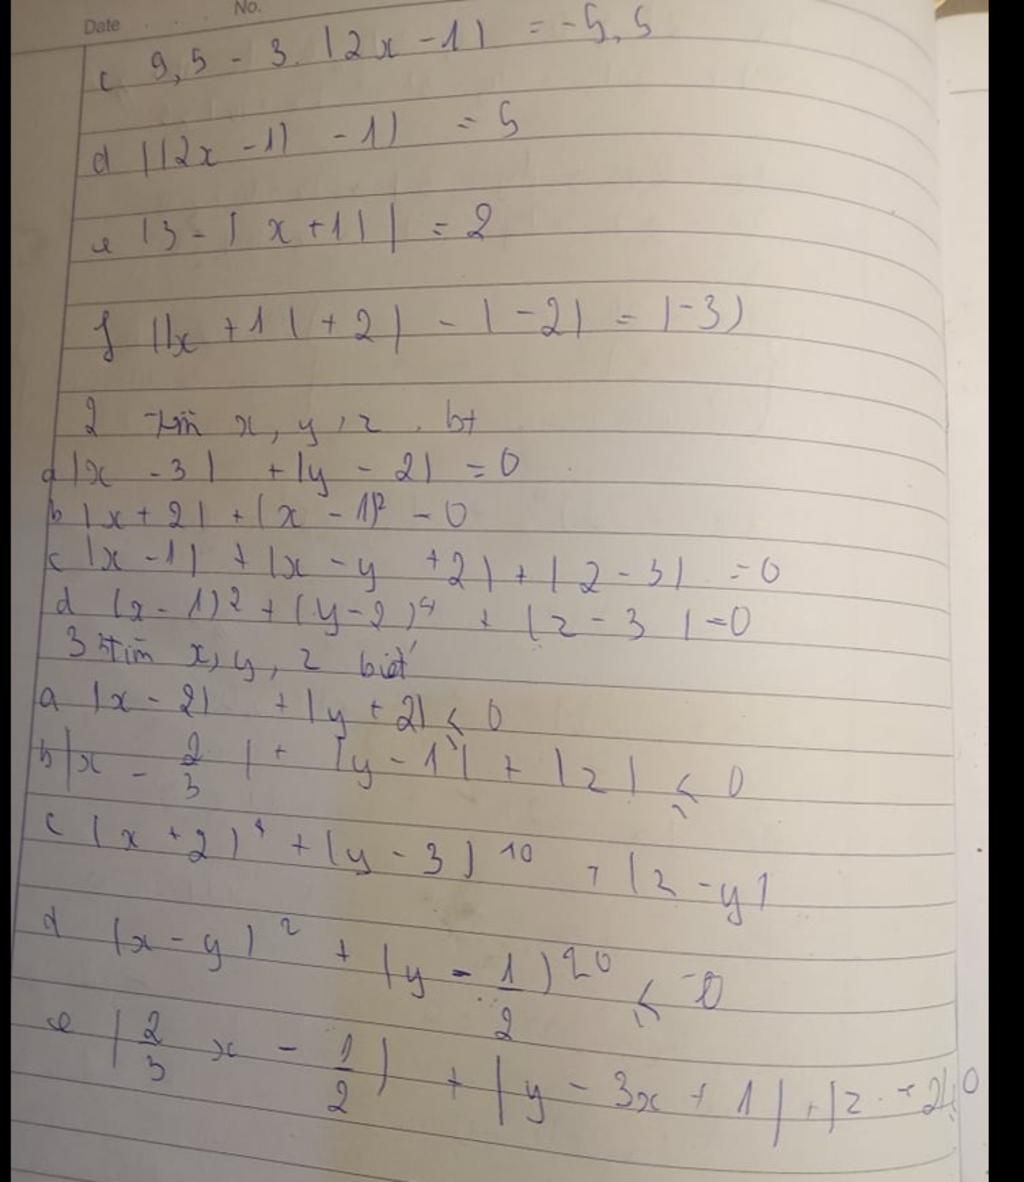 Date No.
c 9,5 - 3. |2x - 1| = -5,5
d ||2x - 1| - 1| = 5
e |3 - |x + 1|| = 2
f ||x + 1| + 2| - |-2| = |-3|
2 Tìm x, y, z bt
a |x - 3| + |y - 2| = 0
b |x + 2| + (x - 1)² = 0
c |x - 1| + |x - y + 2| + |z - 3| = 0
d (x - 1)² + (y - 2)⁴ + |z - 3| = 0
3 tìm x, y, z biết
a |x - 2| + |y + 2| ≤ 0
b |x - 2/3| + |y - 1| + |z| ≤ 0
c (x + 2)⁴ + (y - 3)¹⁰ + |z - y|
d (x - y)² + (y - 1/2)²⁰ ≤ 0
e |2/3 x - 1/2| + |y - 3x + 1| + |z + 2| ≤ 0